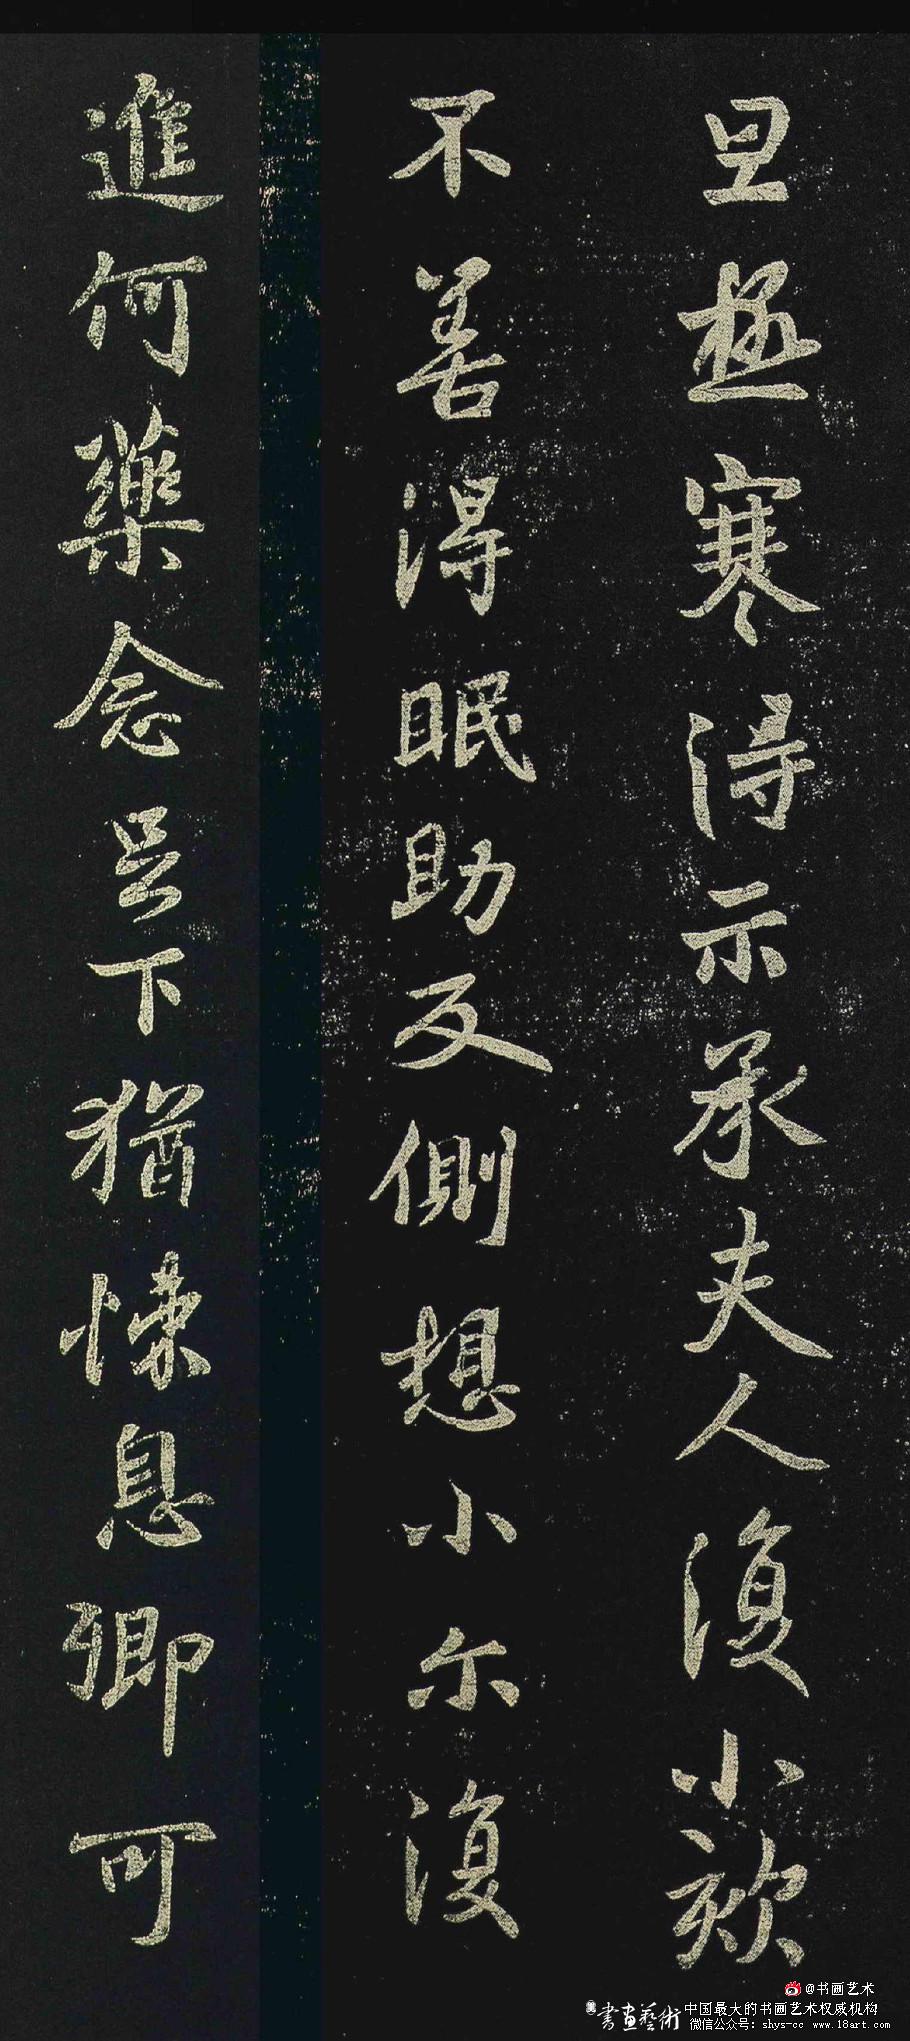 旦極寒得示承夫人復小欬
不善得眠助反側想小尔復
進何藥念足下猶悚息卿可
@书画艺术
書畫藝術 中国最大的书画艺术权威机构
微信公众号: shys-cc www.18art.com